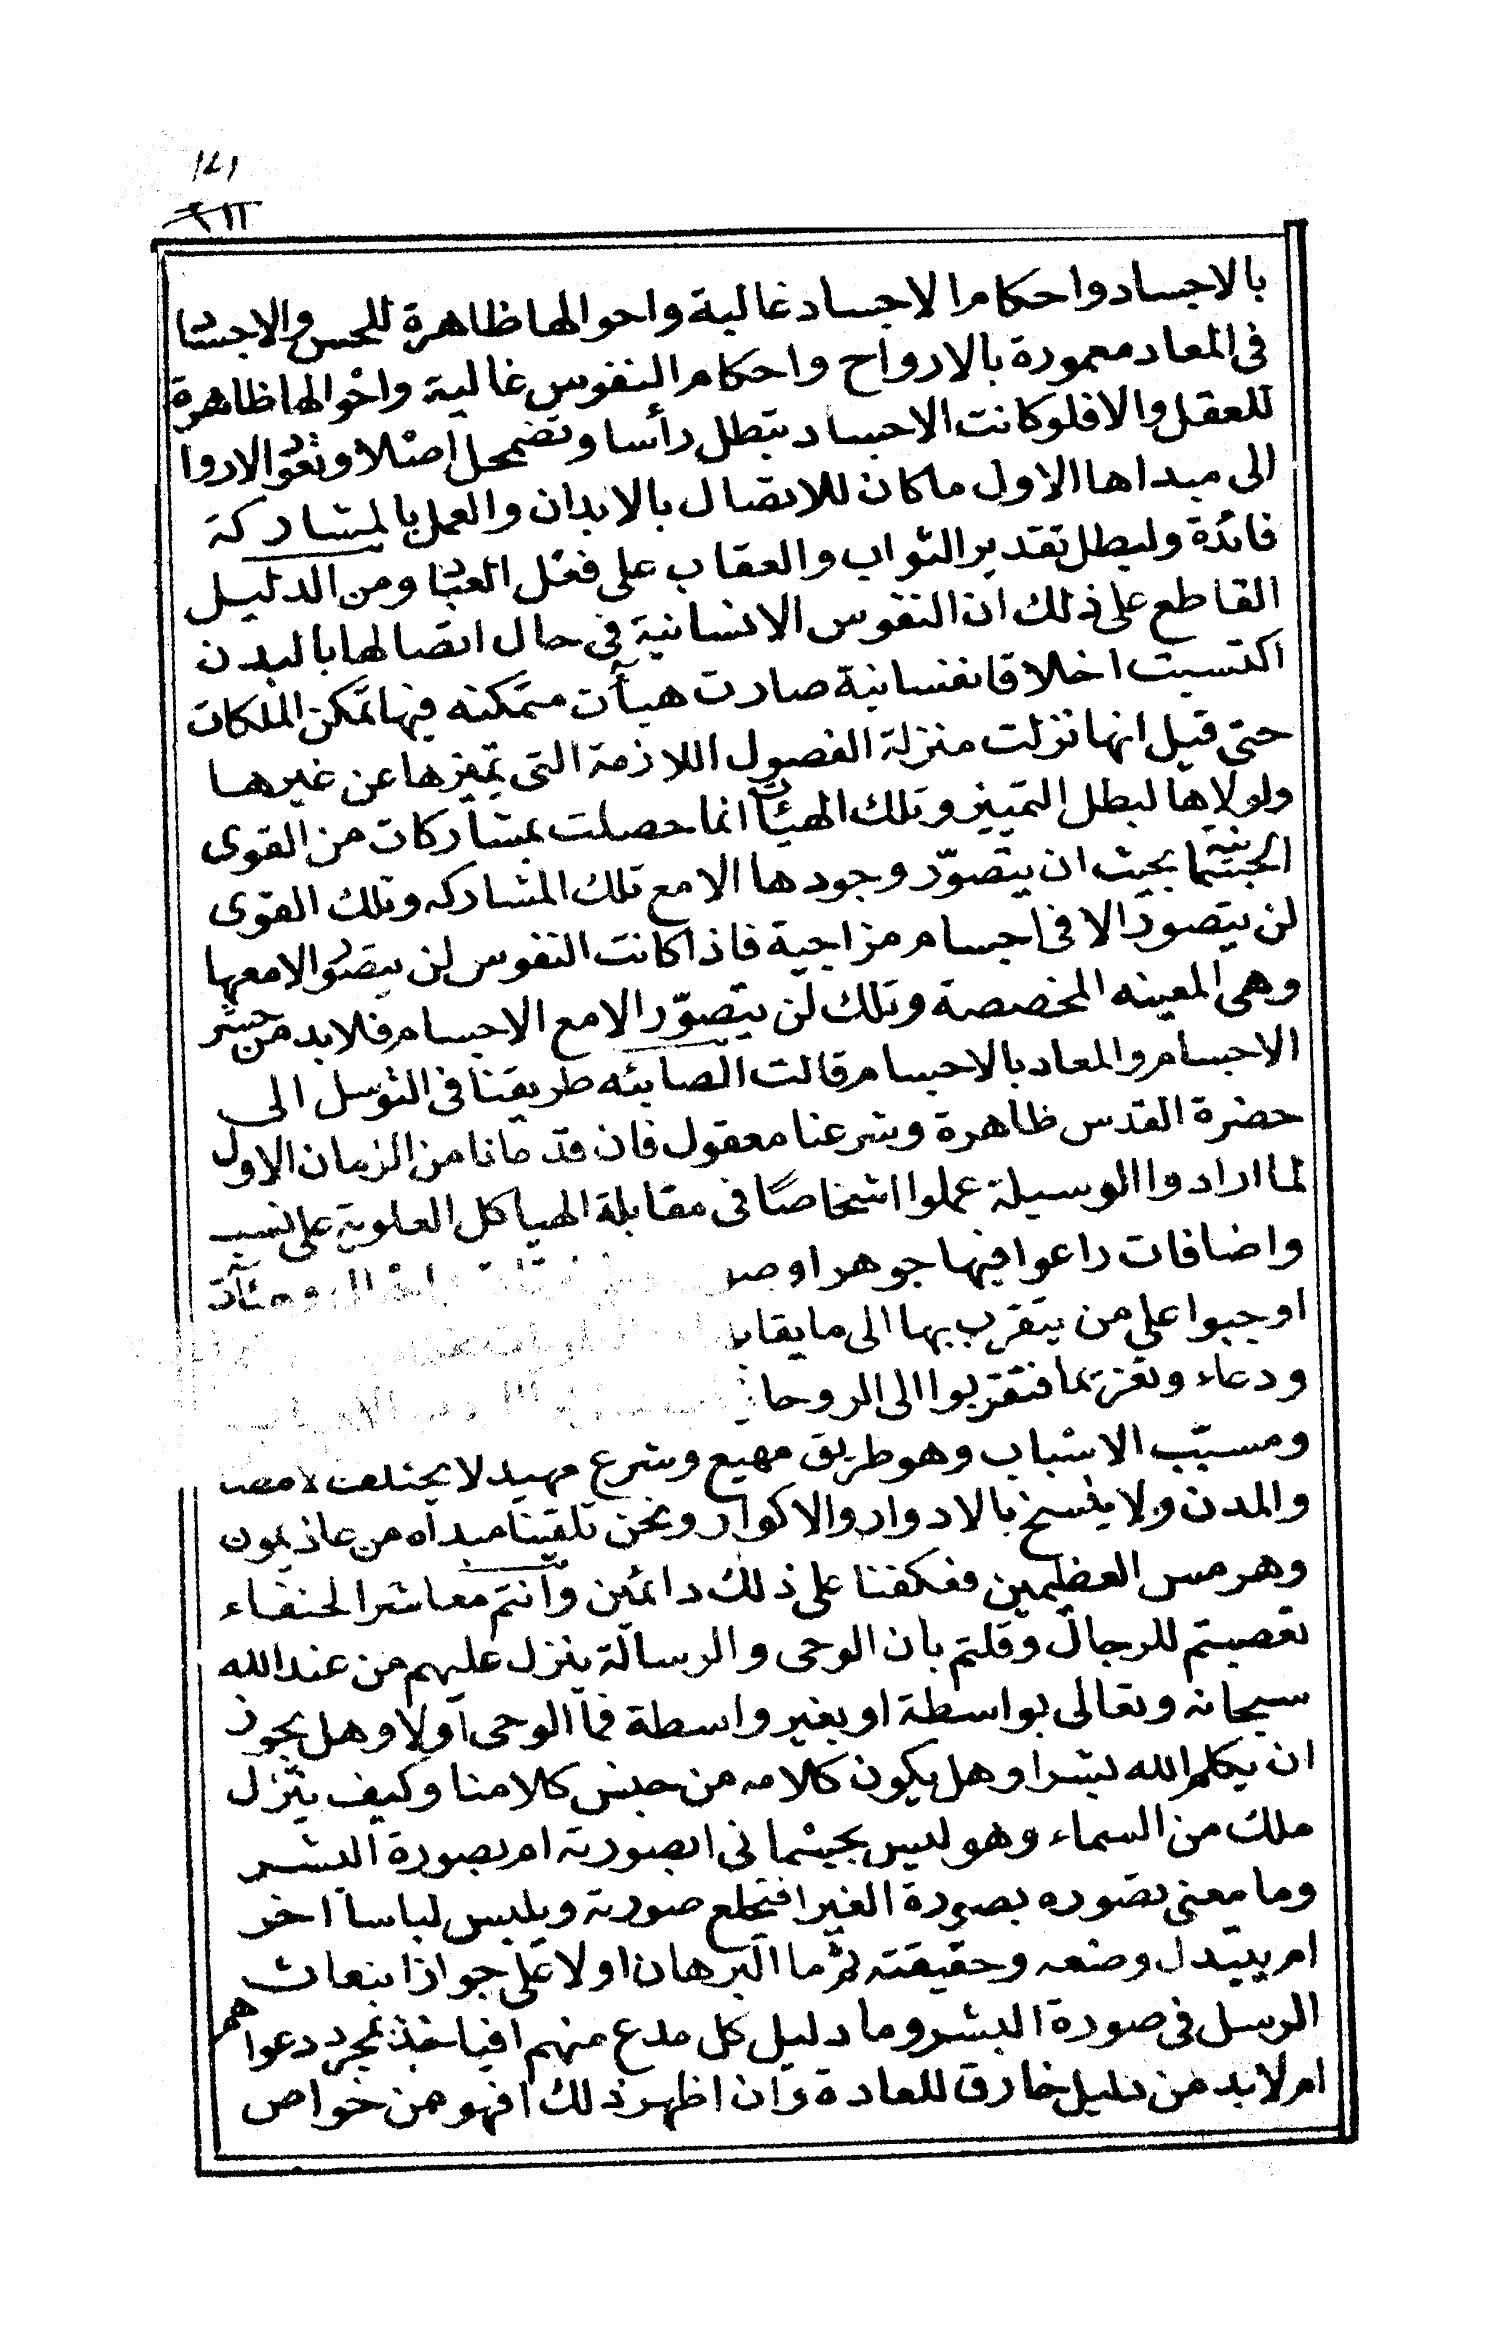 ١٤١
بالاجساد واحكام الاجساد غالبة واحوالها ظاهرة للحس والاجساد
فى المعاد معمورة بالارواح واحكام النفوس غالبة واحوالها ظاهرة
للعقل والا فلو كانت الاجساد تبطل رأسا وتضمحل اصلا وتعود الاروا
الى مبداها الاول ما كان للاتصال بالابدان والعمل بالمشاركة
فائدة ولبطل تقدير الثواب والعقاب على فعل العباد ومن الدليل
القاطع على ذلك ان النفوس الانسانية فى حال اتصالها بالبدن
اكتسبت اخلاقا نفسانية صارت هيأت متمكنه فيها تمكن الملكات
حتى قيل انها نزلت منزلة الفصول اللازمة التى تميزها عن غيرها
ولولاها لبطل التمييز وتلك الهيئات انما حصلت بمشاركات من القوى
الجسمانية بحيث ان يتصوّر وجودها الا مع تلك المشاركه وتلك القوى
لن يتصور الا فى اجسام مزاجية فاذا كانت النفوس لن يتصور الا معها
وهى المعينه المخصصة وتلك لن يتصوّر الا مع الاجسام فلابد من حشر
الاجسام والمعاد بالاجسام قالت الصابئه طريقتنا فى التوسل الى
حضرة القدس ظاهرة وشرعنا معقول فان قدمانا من الزمان الاول
لما ارادوا الوسيلة عملوا اشخاصا فى مقابلة الهياكل العلوية على نسب
واضافات راعوا فيها جوهرا وصو
اوجبوا على من يتقرب بها الى ما يقابل
ودعاء وتعزيما فتقربوا الى الروحا
ومسبّب الاسباب وهو طريق مهيع وشرع مهيد لا يختلف
والمدن ولا ينسخ بالادوار والاكوار ونحن تلقينا مبدأه من عاذيمون
وهرمس العظيمين فعكفنا على ذلك دائمين وانتم معاشر الحنفاء
تعصبتم للرجال وقلتم بان الوحى والرسالة ينزل عليهم من عند الله
سبحانه وتعالى بواسطة او بغير واسطة فما الوحى اولا وهل يجوز
ان يكلم الله بشرا وهل يكون كلامه من جنس كلامنا وكيف ينزل
ملك من السماء وهو ليس بجسمانى ابصورته ام بصورة البشر
وما معنى تصوره بصورة الغير افيخلع صورته ويلبس لباسا اخر
ام يتبدل وضعه وحقيقته ثم ما البرهان اولا على جواز انبعاث
الرسل فى صورة البشر وما دليل كل مدع منهم افياخذ بمجرد دعواهم
ام لابد من دليل خارق للعادة وان اظهر ذلك افهو من خواص